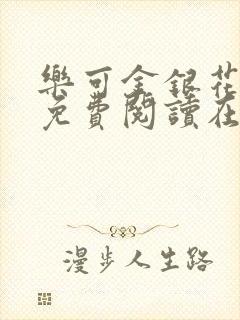 樂可金銀花
免費閱讀在
漫步人生路